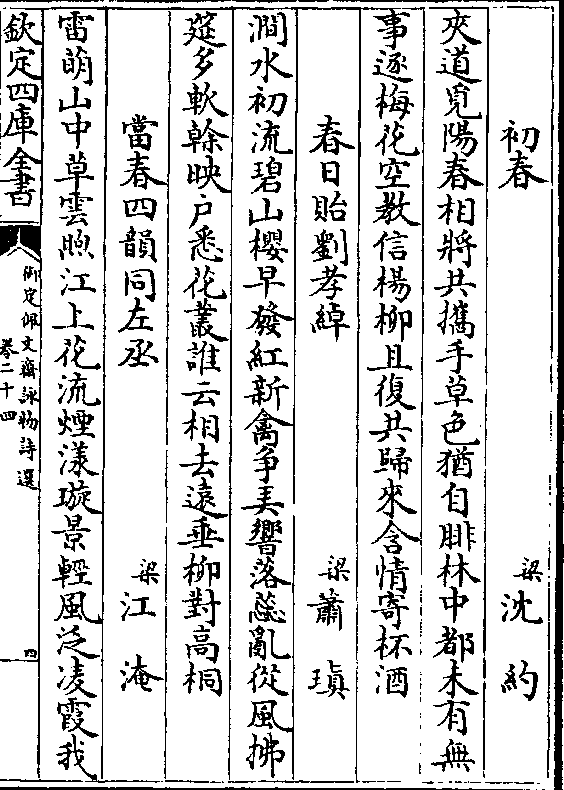 初春　梁沈約
夾道覓陽春相將共攜手草色猶自腓林中都未有無
事逐梅花空教信楊柳且復共歸來含情寄杯酒
春日貽劉孝綽　梁蕭瑱
澗水初流碧山櫻早發紅新禽争弄響落蕊亂從風拂
筵多軟幹映户悉花叢誰云相去遠垂柳對高桐
當春四韻同左丞　梁江淹
雷萌山中草雲煦江上花流煙漾璇景輕風泛凌霞我
欽定四庫全書
御定佩文齋詠物詩選
卷二十四
四